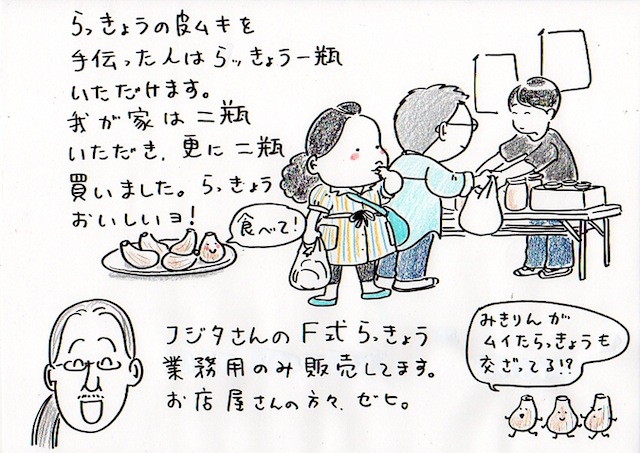 らっきょうの皮ムキを
手伝った人はらッきょう一瓶
いただけます。
我が家は二瓶
いただき、更に二瓶
買いました。らっきょう
おいしいヨ!
食べて!
フジタさんのF式らっきょう
業務用のみ販売してます。
お店屋さんの方々、ゼヒ。
みきりんが
ムイたらっきょうも
交ざってる!?